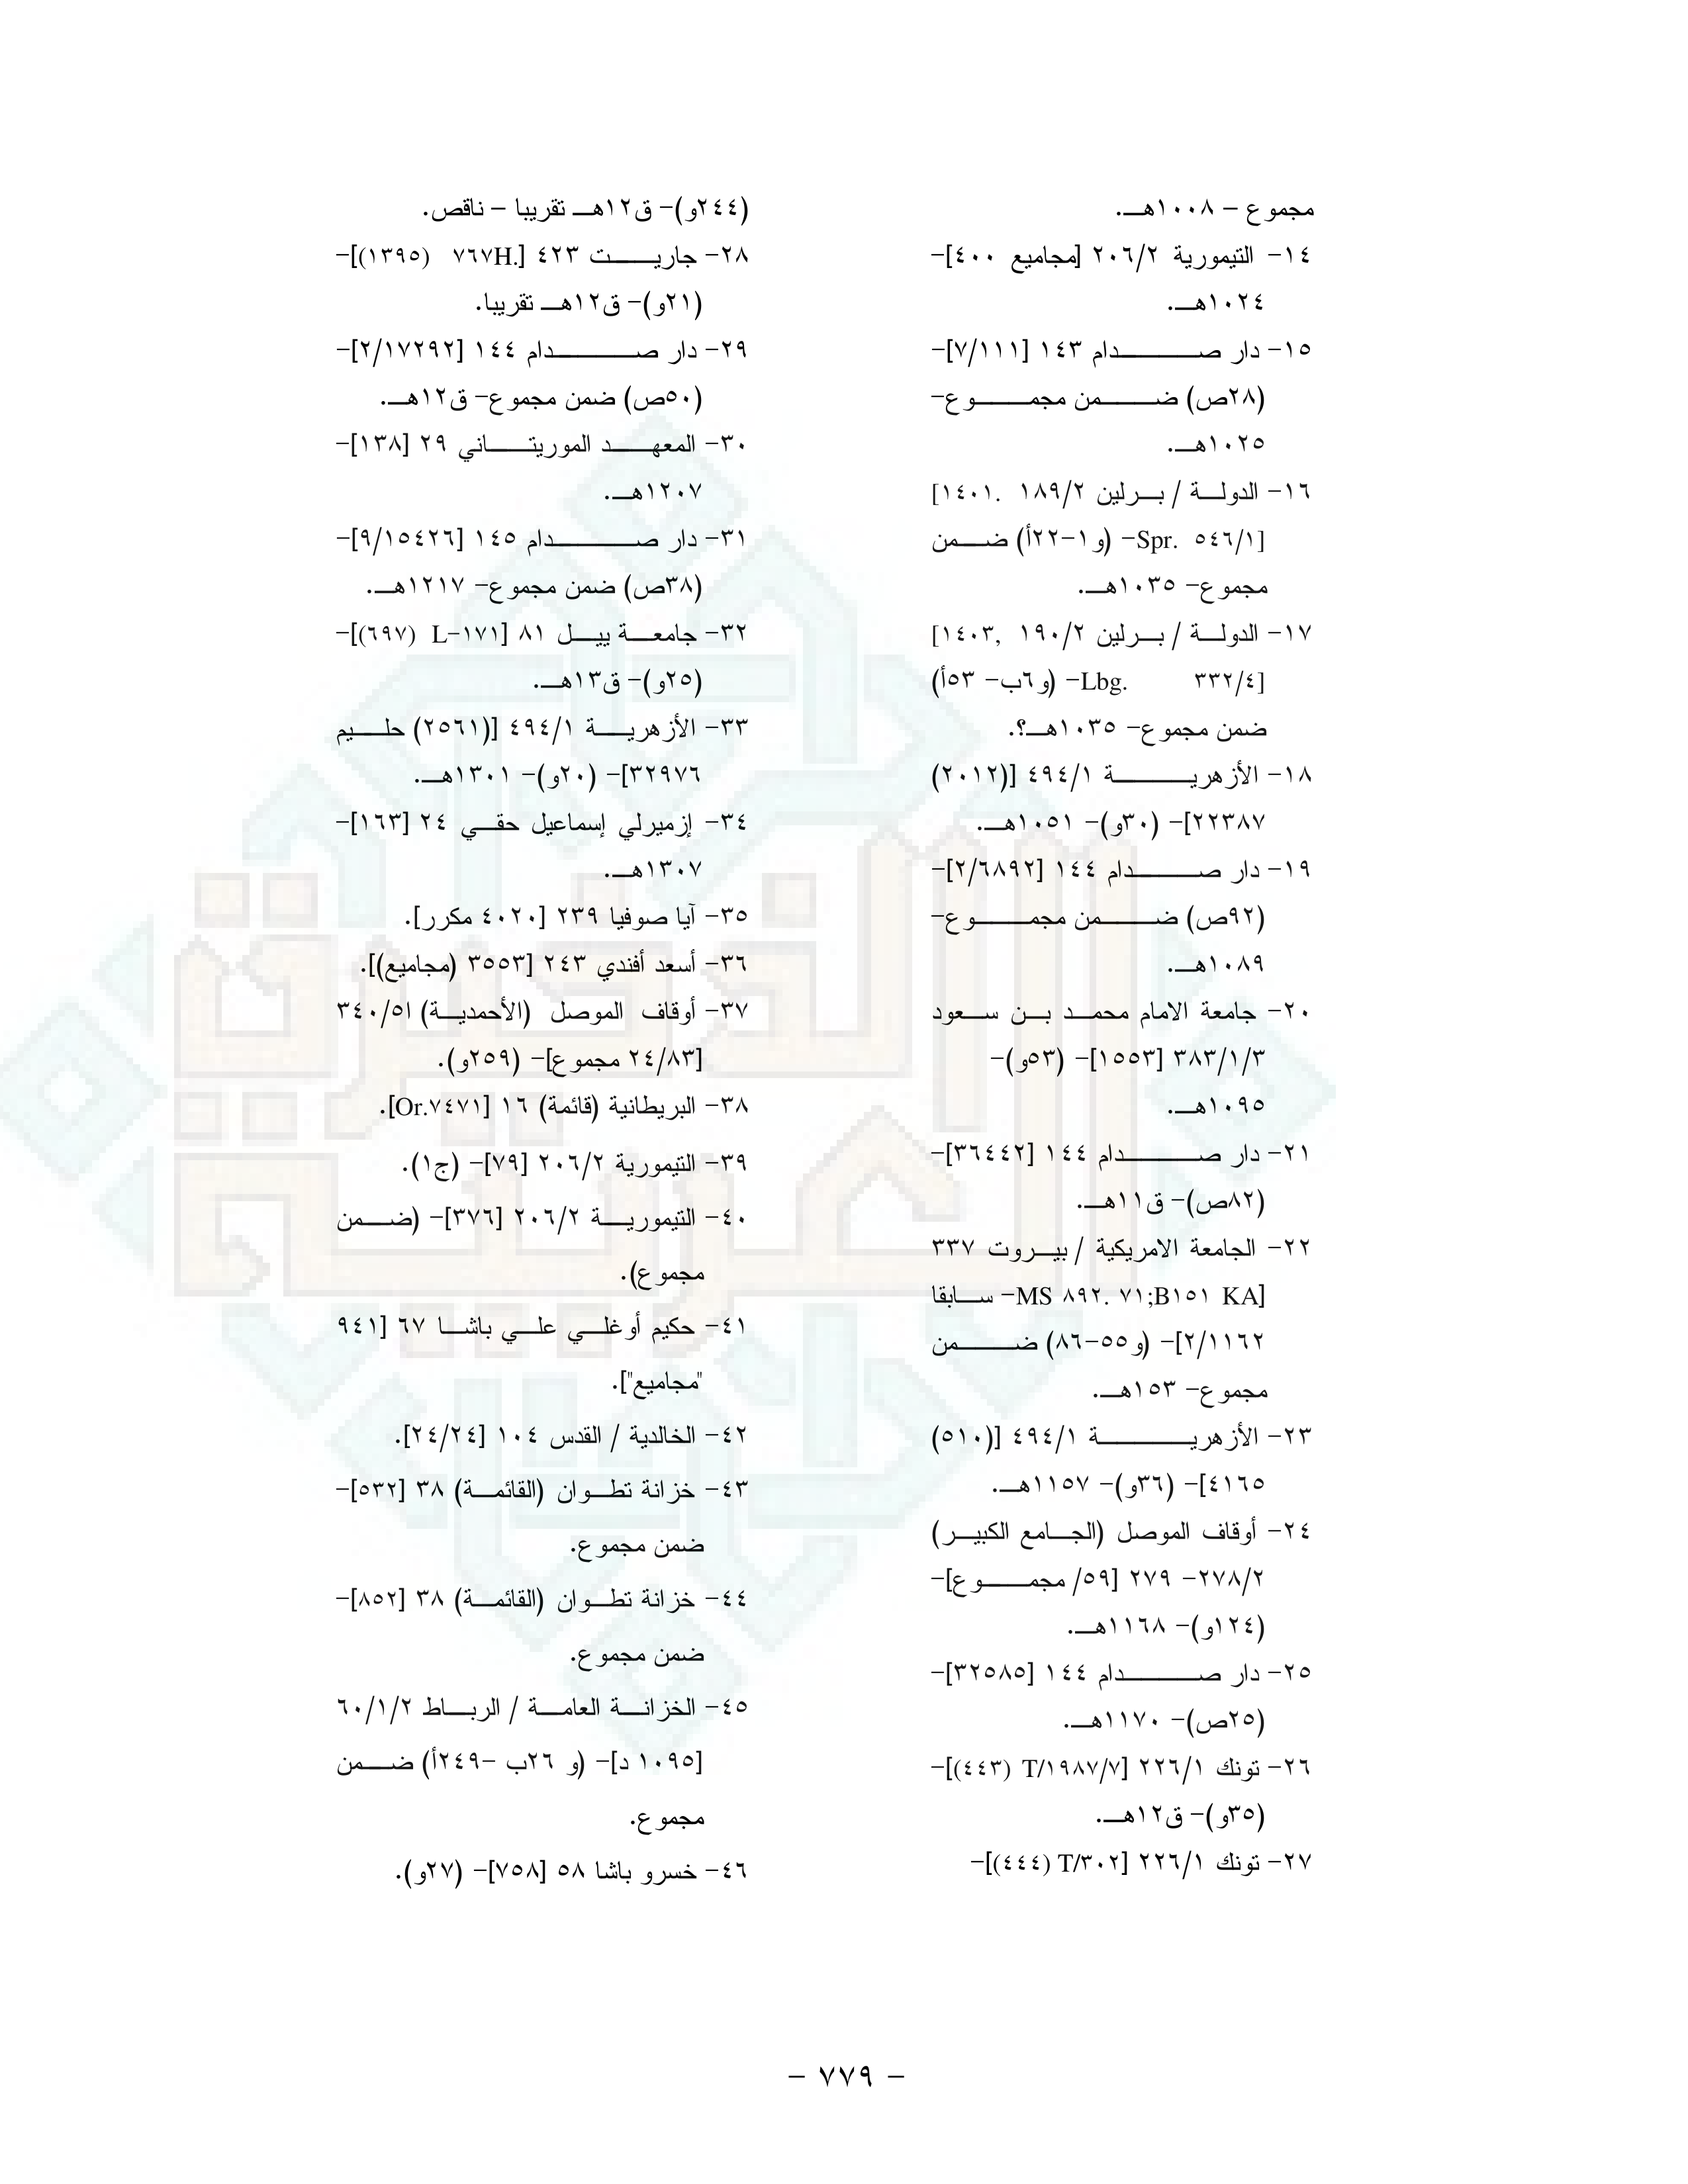 مجموع – ١٠٠٨هـ.
١٤- التيمورية ٢٠٦/٢ [مجاميع ٤٠٠]-
١٠٢٤هـ.
١٥- دار صدام ١٤٣ [٧/١١١]-
(٢٨ص) ضمن مجموع-
١٠٢٥هـ.
١٦- الدولة / برلين ١٨٩/٢ [١٤٠١.
Spr. ٥٤٦/١]- (و١-٢٢أ) ضمن
مجموع- ١٠٣٥هـ.
١٧- الدولة / برلين ١٩٠/٢ [١٤٠٣,
Lbg. ٣٣٢/٤]- (و٦ب- ٥٣أ)
ضمن مجموع- ١٠٣٥هـ؟.
١٨- الأزهرية ٤٩٤/١ [(٢٠١٢)
٢٢٣٨٧]- (٣٠و)- ١٠٥١هـ.
١٩- دار صدام ١٤٤ [٢/٦٨٩٢]-
(٩٢ص) ضمن مجموع-
١٠٨٩هـ.
٢٠- جامعة الامام محمد بن سعود
٣٨٣/١/٣ [١٥٥٣]- (٥٣و)-
١٠٩٥هـ.
٢١- دار صدام ١٤٤ [٣٦٤٤٢]-
(٨٢ص)- ق١١هـ.
٢٢- الجامعة الامريكية / بيروت ٣٣٧
[MS ٨٩٢. ٧١;B١٥١ KA- سابقا
٢/١١٦٢]- (و٥٥-٨٦) ضمن
مجموع- ١٥٣هـ.
٢٣- الأزهرية ٤٩٤/١ [(٥١٠)
٤١٦٥]- (٣٦و)- ١١٥٧هـ.
٢٤- أوقاف الموصل (الجامع الكبير)
٢٧٨/٢- ٢٧٩ [٥٩/ مجموع]-
(١٢٤و)- ١١٦٨هـ.
٢٥- دار صدام ١٤٤ [٣٢٥٨٥]-
(٢٥ص)- ١١٧٠هـ.
٢٦- تونك ٢٢٦/١ [T/١٩٨٧/٧ (٤٤٣)]-
(٣٥و)- ق١٢هـ.
٢٧- تونك ٢٢٦/١ [T/٣٠٢ (٤٤٤)]-
(٢٤٤و)- ق١٢هـ تقريبا – ناقص.
٢٨- جاريت ٤٢٣ [٧٦٧H. (١٣٩٥)]-
(٢١و)- ق١٢هـ تقريبا.
٢٩- دار صدام ١٤٤ [٢/١٧٢٩٢]-
(٥٠ص) ضمن مجموع- ق١٢هـ.
٣٠- المعهد الموريتاني ٢٩ [١٣٨]-
١٢٠٧هـ.
٣١- دار صدام ١٤٥ [٩/١٥٤٢٦]-
(٣٨ص) ضمن مجموع- ١٢١٧هـ.
٣٢- جامعة ييل ٨١ [L-١٧١ (٦٩٧)]-
(٢٥و)- ق١٣هـ.
٣٣- الأزهرية ٤٩٤/١ [(٢٥٦١) حليم
٣٢٩٧٦]- (٢٠و)- ١٣٠١هـ.
٣٤- إزميرلي إسماعيل حقي ٢٤ [١٦٣]-
١٣٠٧هـ.
٣٥- آيا صوفيا ٢٣٩ [٤٠٢٠ مكرر].
٣٦- أسعد أفندي ٢٤٣ [٣٥٥٣ (مجاميع)].
٣٧- أوقاف الموصل (الأحمدية) ٣٤٠/٥١
[٢٤/٨٣ مجموع]- (٢٥٩و).
٣٨- البريطانية (قائمة) ١٦ [Or.٧٤٧١].
٣٩- التيمورية ٢٠٦/٢ [٧٩]- (ج١).
٤٠- التيمورية ٢٠٦/٢ [٣٧٦]- (ضمن
مجموع).
٤١- حكيم أوغلي علي باشا ٦٧ [٩٤١
"مجاميع"].
٤٢- الخالدية / القدس ١٠٤ [٢٤/٢٤].
٤٣- خزانة تطوان (القائمة) ٣٨ [٥٣٢]-
ضمن مجموع.
٤٤- خزانة تطوان (القائمة) ٣٨ [٨٥٢]-
ضمن مجموع.
٤٥- الخزانة العامة / الرباط ٦٠/١/٢
[١٠٩٥ د]- (و ٢٦ب -٢٤٩أ) ضمن
مجموع.
٤٦- خسرو باشا ٥٨ [٧٥٨]- (٢٧و).
- ٧٧٩ -